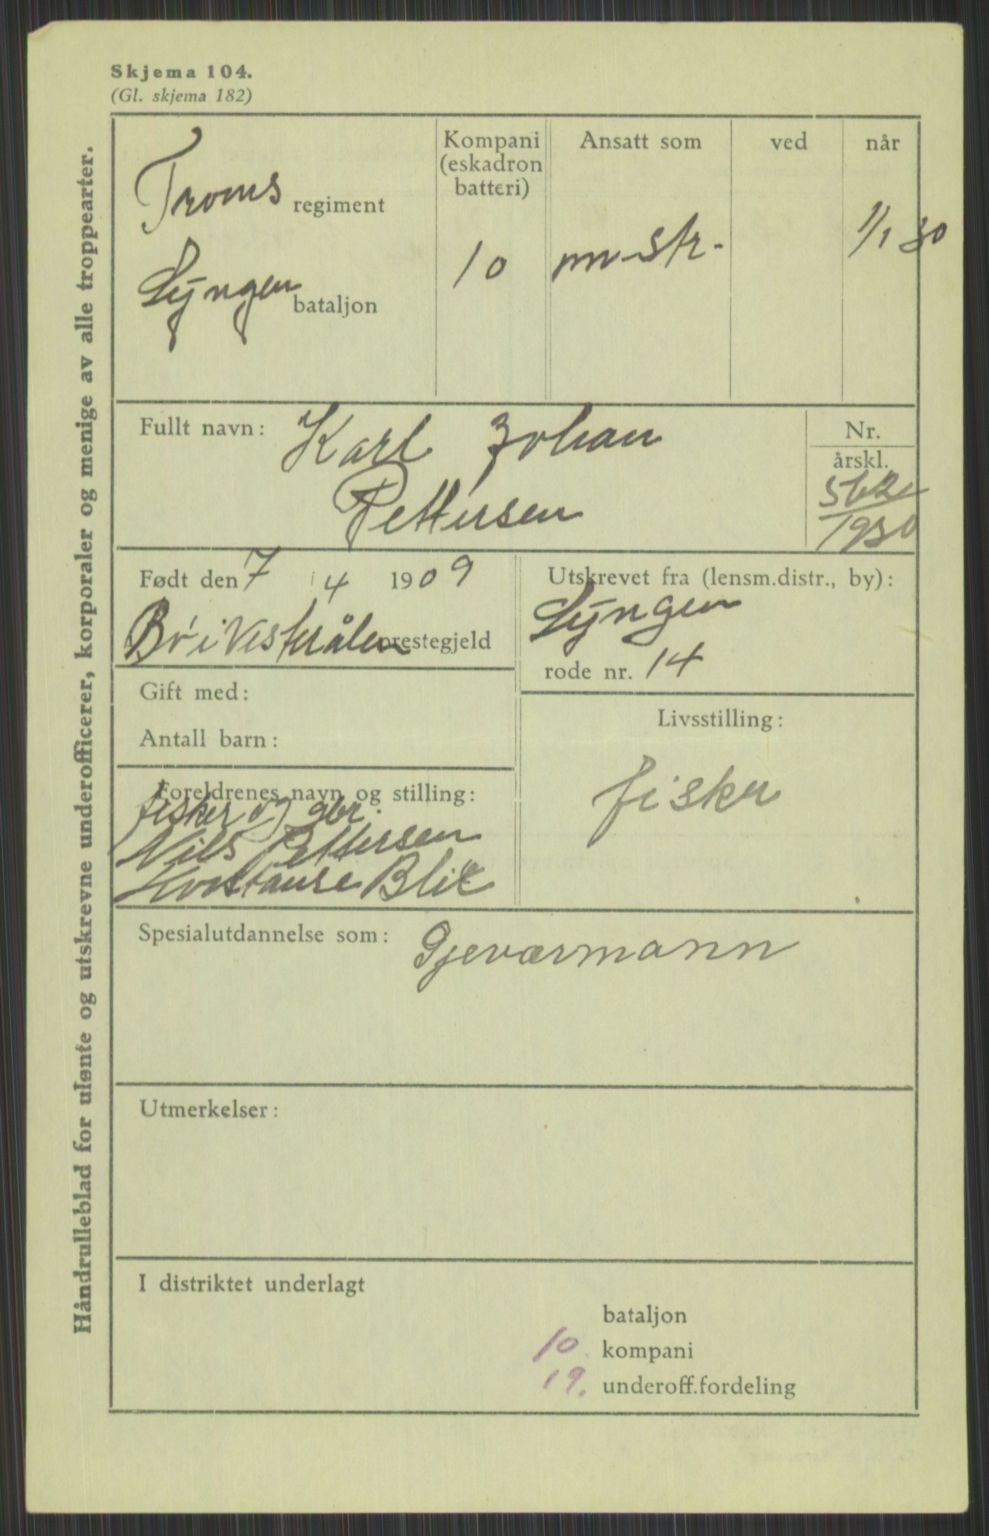 Skjema 104.
(Gl. skjema 182)
Håndrulleblad for ulønte og utskrevne underofficerer, korporaler og menige av alle troppearter.
Troms regiment
Lyngen bataljon
Kompani
(eskadron
batteri)
10
Ansatt som
m-str.
ved
når
1/1 30
Fullt navn: Karl Johan
Pettersen
Nr.
årskl.
1930
Født den 7 4 1909
Bø i Vesterålen prestegjeld
Utskrevet fra (lensm.distr., by):
Lyngen
rode nr. 14
Gift med:
Antall barn:
Livsstilling:
fisker
Foreldrenes navn og stilling:
fisker og gbr.
Nils Pettersen
Konstanse Blix
Spesialutdannelse som: Gjeværmann
Utmerkelser:
I distriktet underlagt
bataljon
10. kompani
19. underoff.fordeling